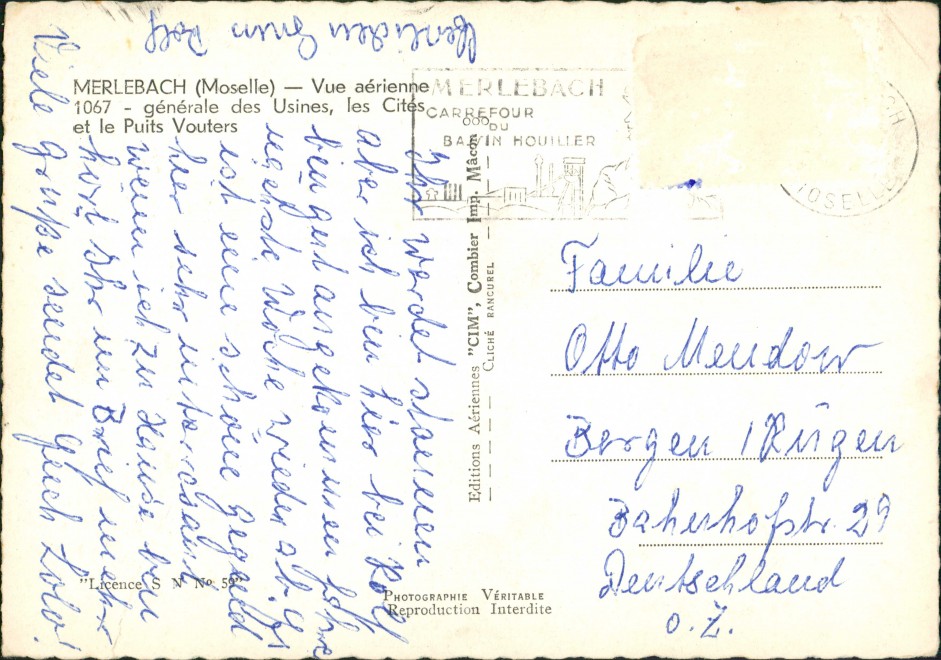 MERLEBACH (Moselle) — Vue aérienne
1067 - générale des Usines, les Cités
et le Puits Vouters
MERLEBACH
CARREFOUR
DU
BASSIN HOUILLER
MOSELLE
Ihr werdet staunen
aber ich bin hier bei Rolf
bin gut angekommen fahre
nächste Woche wieder ab. Es
ist eine schöne Gegend
hier sehr interesant
wenn ich zu Hause bin
hört Ihr im Brief mehr
Viele Grüße sendet Euch
Herzlichen Gruss Rolf
Editions Aériennes "CIM", Combier Imp. Mâcon
CLICHÉ RANCUREL
Familie
Otto Mendow
Bergen / Rügen
Bahnhofstr. 29
Deutschland
O. Z.
"Licence S N Nº 59"
PHOTOGRAPHIE VÉRITABLE
Reproduction Interdite